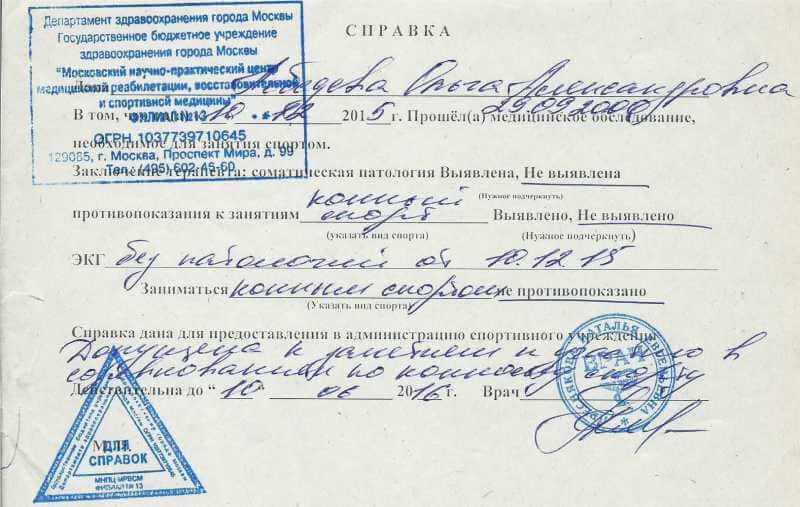 Департамент здравоохранения города Москвы
Государственное бюджетное учреждение
здравоохранения города Москвы
"Московский научно-практический центр
медицинской реабилитации, восстановительной
и спортивной медицины"
ФИЛИАЛ № 13
ОГРН 1037739710645
129085, г. Москва, Проспект Мира, д. 99
Тел. (495) 602-45-60
СПРАВКА
Дана Ольга Александровна
29.09.2000
В том, что 10 12 2015 г. Прошёл(а) медицинское обследование,
необходимое для занятия спортом.
Заключение терапевта: соматическая патология Выявлена, Не выявлена
(Нужное подчеркнуть)
противопоказания к занятиям конный спорт Выявлено, Не выявлено
(указать вид спорта) (Нужное подчеркнуть)
ЭКГ без патологий от 10.12.15
Заниматься конным спортом не противопоказано
(Указать вид спорта)
Справка дана для предоставления в администрацию спортивного учреждения
Допущена к занятиям и участию в
соревнованиях по конному спорту
Действительна до "10" 06 2016 г. Врач
М.П.
ДЛЯ
СПРАВОК
МНПЦ МРВСМ
ФИЛИАЛ № 13
ВРАЧ
НАТАЛЬЯ